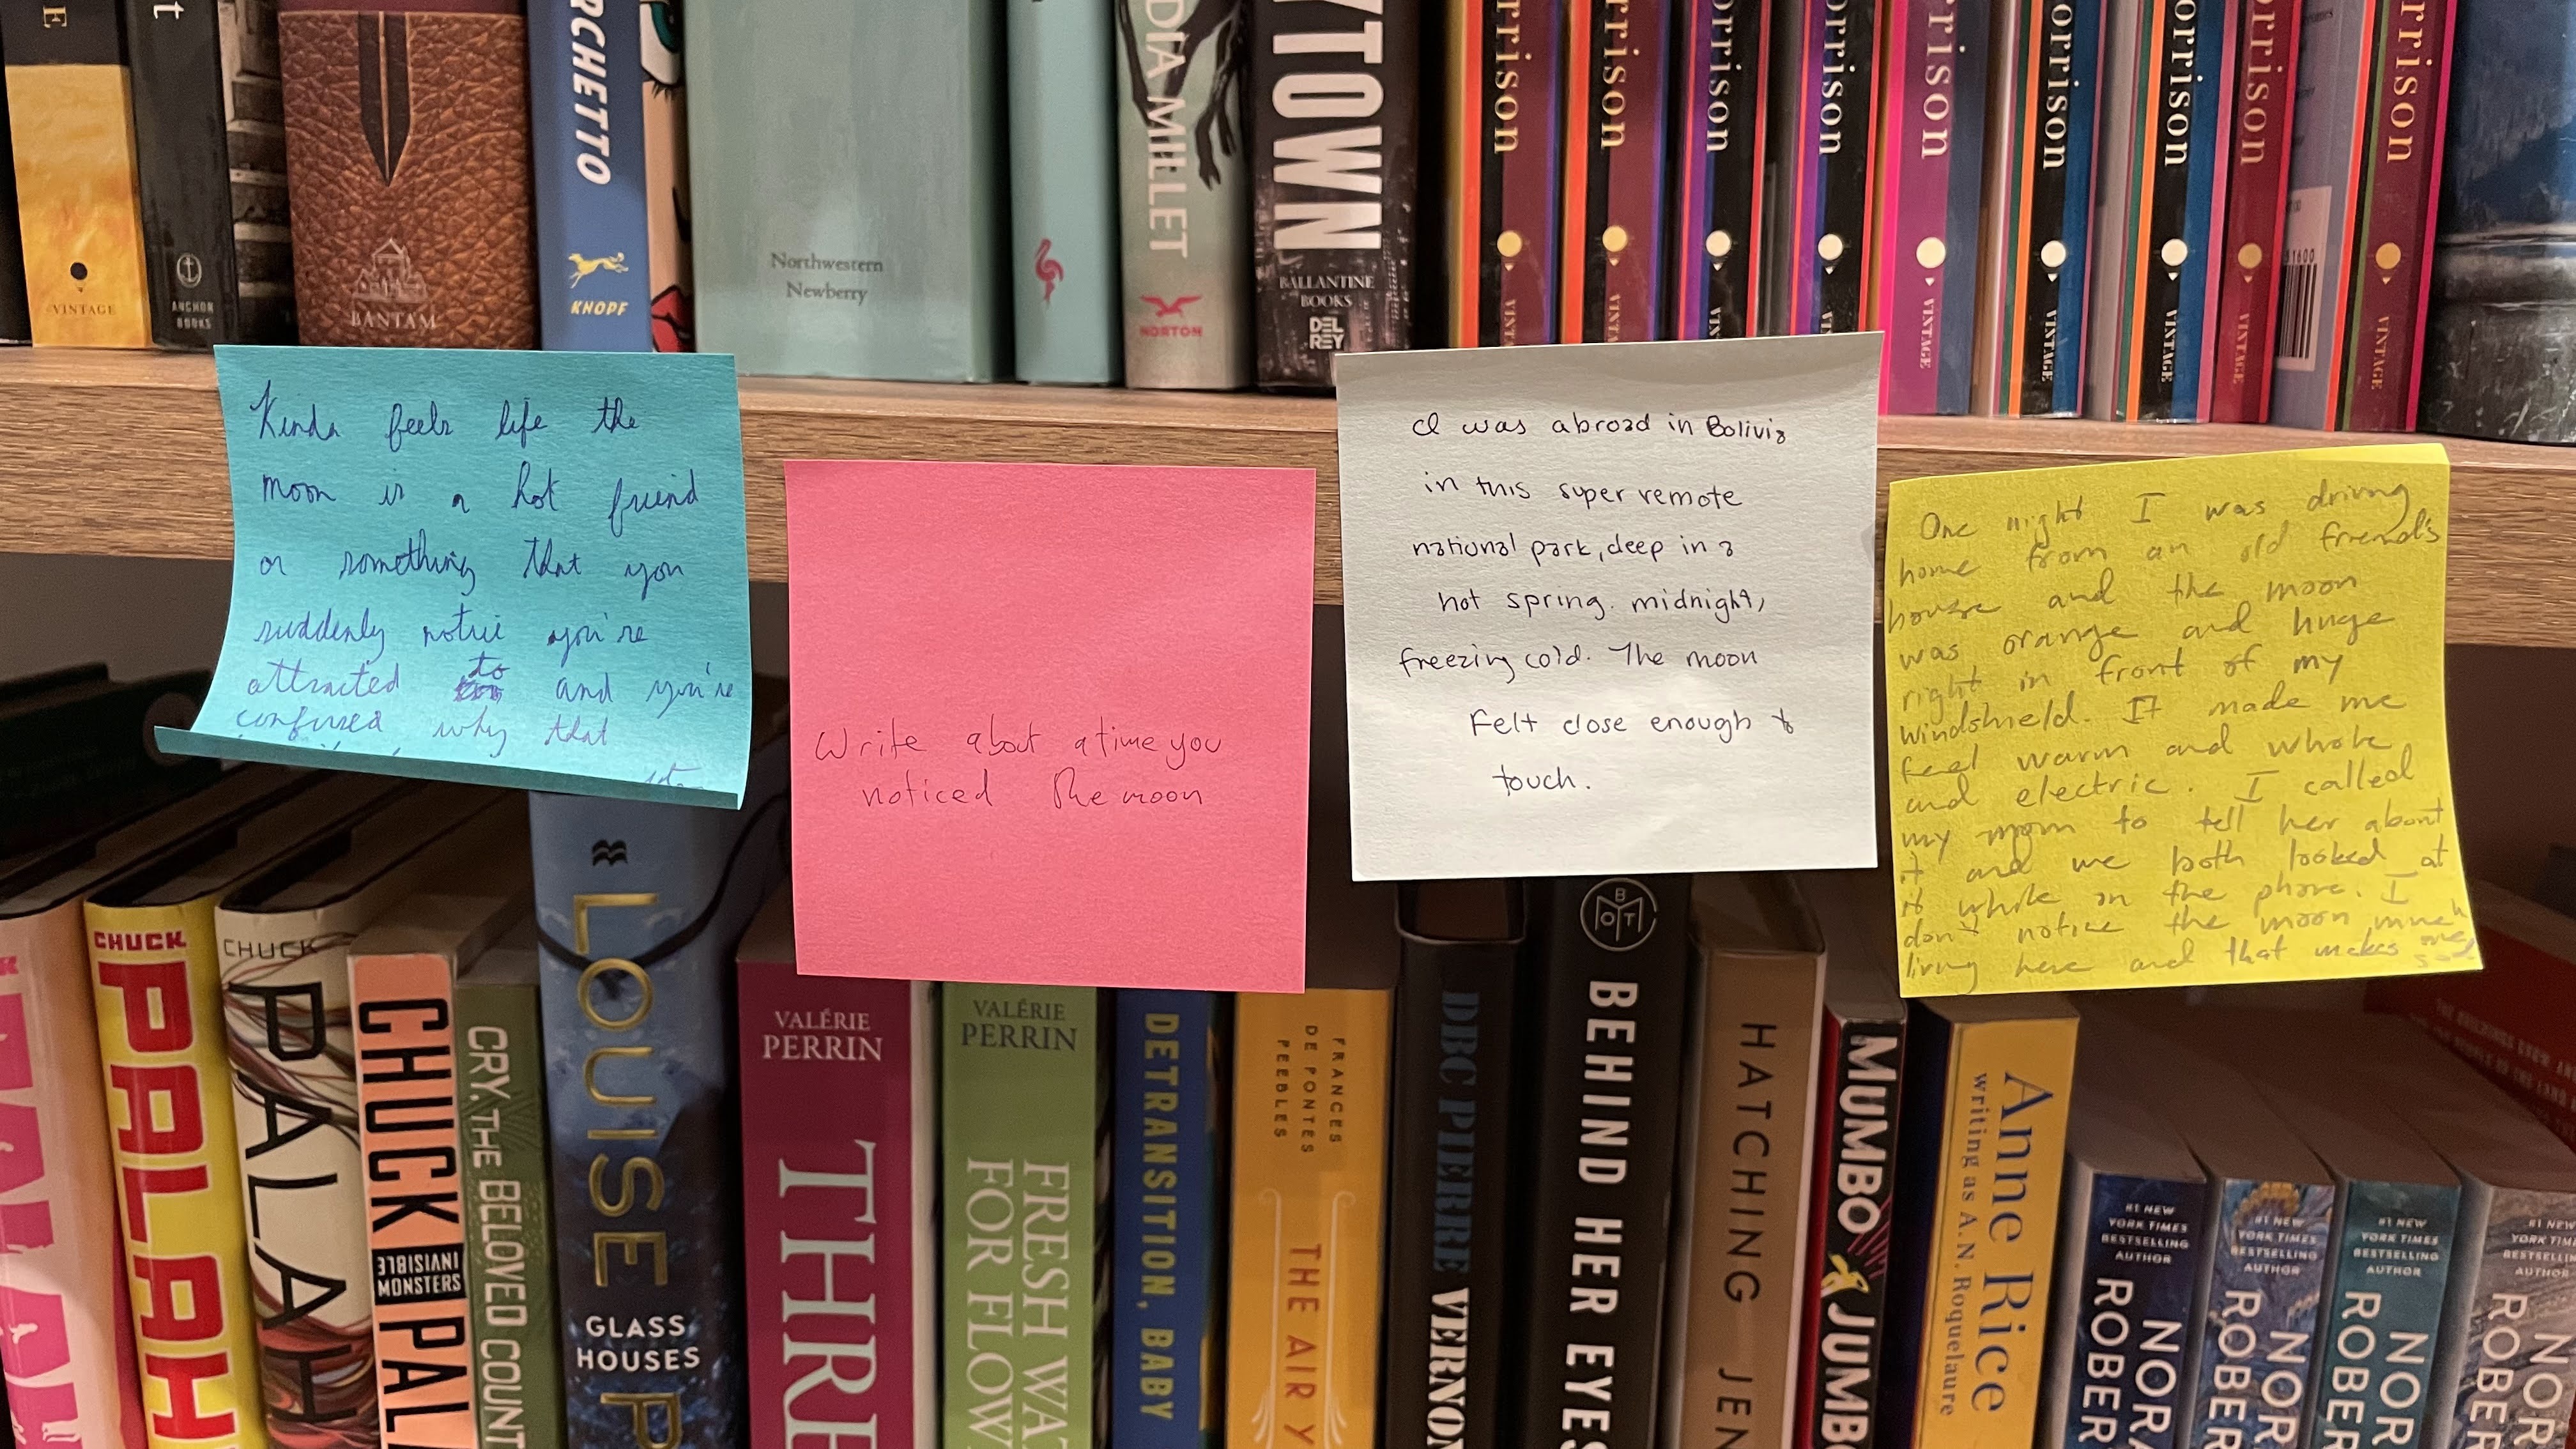 E
VINTAGE
t
ANCHOR
BOOKS
BANTAM
RCHETTO
KNOPF
Northwestern
Newberry
DIA MILLET
NORTON
YTOWN
BALLANTINE
BOOKS
DEL
REY
rrison
VINTAGE
rrison
VINTA
orrison
VIN
orrison
VIN
rrison
VINTAGE
orrison
VINTAGE
orrison
VINTAGE
orrison
VINTAGE
51600
rrison
VINTAGE
Kinda feels life the
moon is a hot friend
or something that you
suddenly notice you're
attracted to and you're
confused why that
Write about a time you
noticed the moon
I was abroad in Bolivia
in this super remote
national park, deep in a
hot spring. midnight,
freezing cold. The moon
Felt close enough to
touch.
One night I was driving
home from an old friend's
house and the moon
was orange and huge
right in front of my
windshield. It made me
feel warm and whole
and electric. I called
my mom to tell her about
it and we both looked at
it while on the phone. I
don't notice the moon much
living here and that makes me
sad
CHUCK
PALAH
CHUCK
PALAH
CHUCK PAL
INVISIBLE
MONSTERS
CRY, THE BELOVED COUNT
LOUISE P
GLASS
HOUSES
VALÉRIE
PERRIN
THRE
VALÉRIE
PERRIN
FRESH WAT
FOR FLOW
DETRANSITION, BABY
FRANCES
DE PONTES
PEEBLES
THE AIR Y
DBC PIERRE VERNON
BOTM
BEHIND HER EYES
HATCHING JEN
MUMBO JUMBO
Anne Rice
writing as A.N. Roquelaure
#1 NEW
YORK TIMES
BESTSELLING
AUTHOR
NORA
ROBER
#1 NEW
YORK TIMES
BESTSELLING
AUTHOR
NORA
ROBER
#1 NEW
YORK TIMES
BESTSELLING
AUTHOR
NOR
ROBER
#1 NEW
YORK TIMES
BESTSELLING
AUTHOR
NOR
ROBER